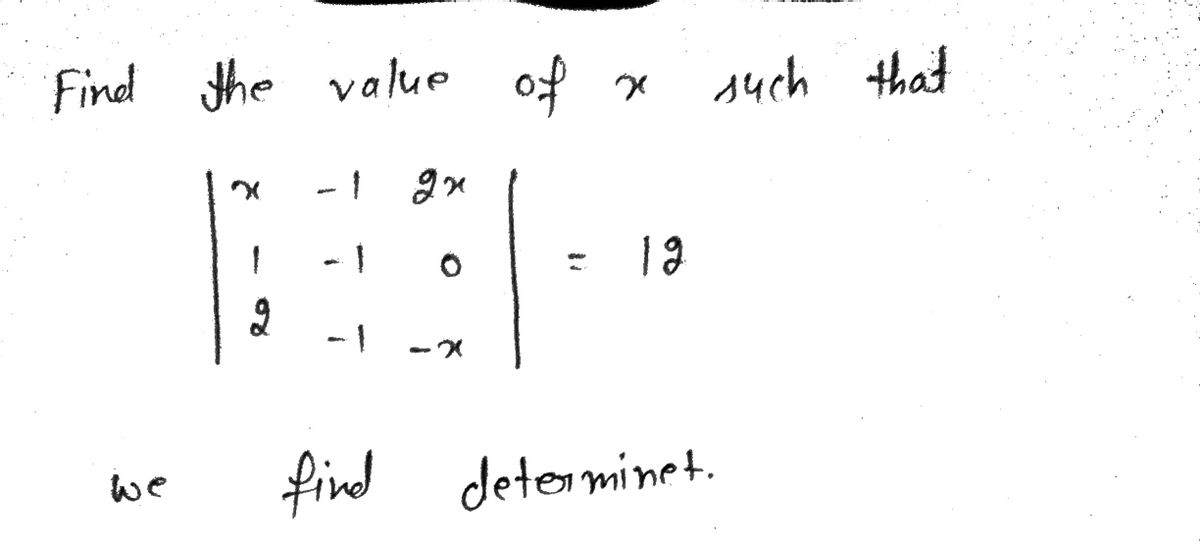 Find the value of x such that
| x -1 2x |
| 1 -1 0 | = 12
| 2 -1 -x |
we find determinet.